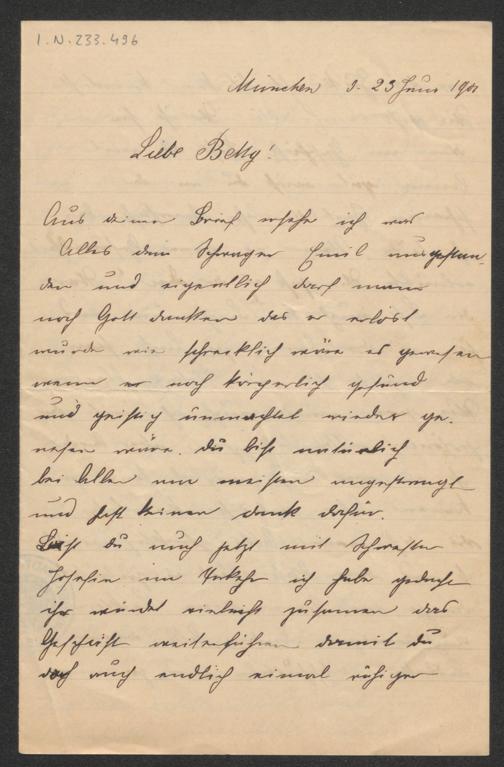 I.N. 233.496
München d. 23 Juni 1901
Liebe Betty!
Aus deinem Brief ersehe ich was
Alles dein Schwager Emil ausgestan-
den und eigentlich darf man
noch Gott danken das er erlöst
wurde wie schrecklich wäre es gewesen
wenn er noch körperlich gesund
und geistig unmachtet wieder ge-
nesen wäre. du bist natürlich
bei Allen am meisten angestrengt
und hast keinen dank dafür.
du auch jetzt mit Schwester
Josefin im ich habe gedacht
ihr würdet vieleicht zusamen das
Geschäft weiterführen damit du
doch auch endlich einmal ruhiger